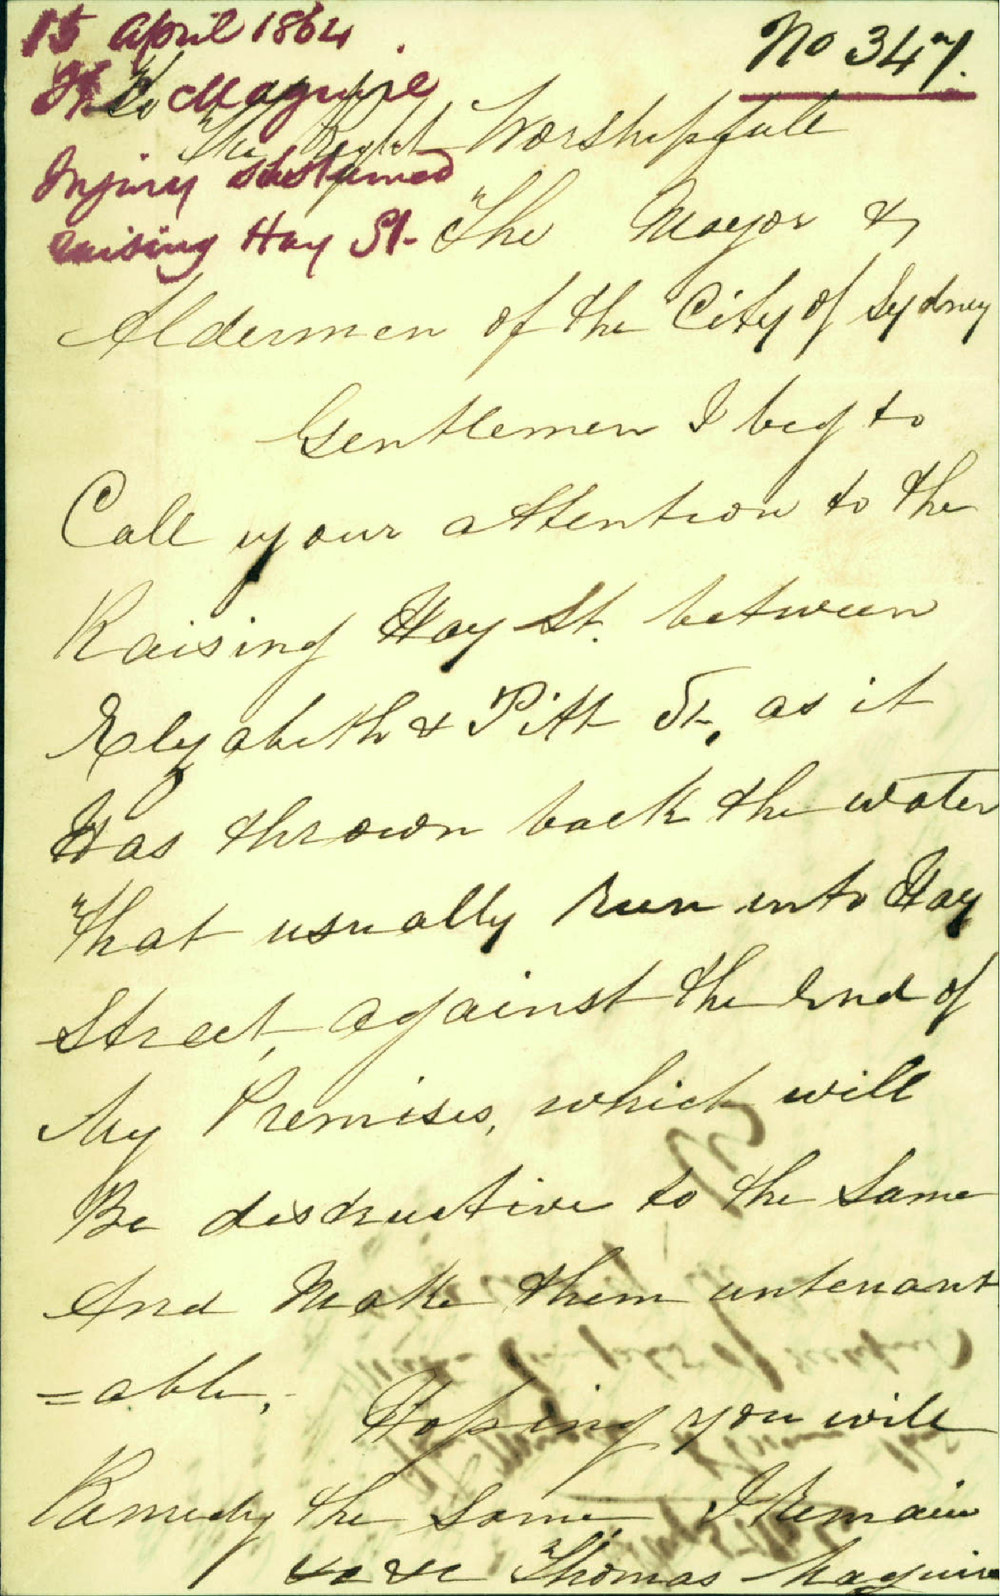 15 April 1864.
No 347.
Th. Maguire
Injury sustained
raising Hay St.
To
The Right Worshipfull
The Mayor &
Aldermen of the City of Sydney
Gentlemen I beg to
Call your attention to the
Raising Hay St. between
Elyabeth & Pitt St, as it
Has thrown back the water
That usually Run into Hay
Street, against the End of
My Premises, which will
Be destructive to the Same
And Make them untenant
=able,
Hoping you will
Remedy the Same, I Remain
&c &c Thomas Maguire